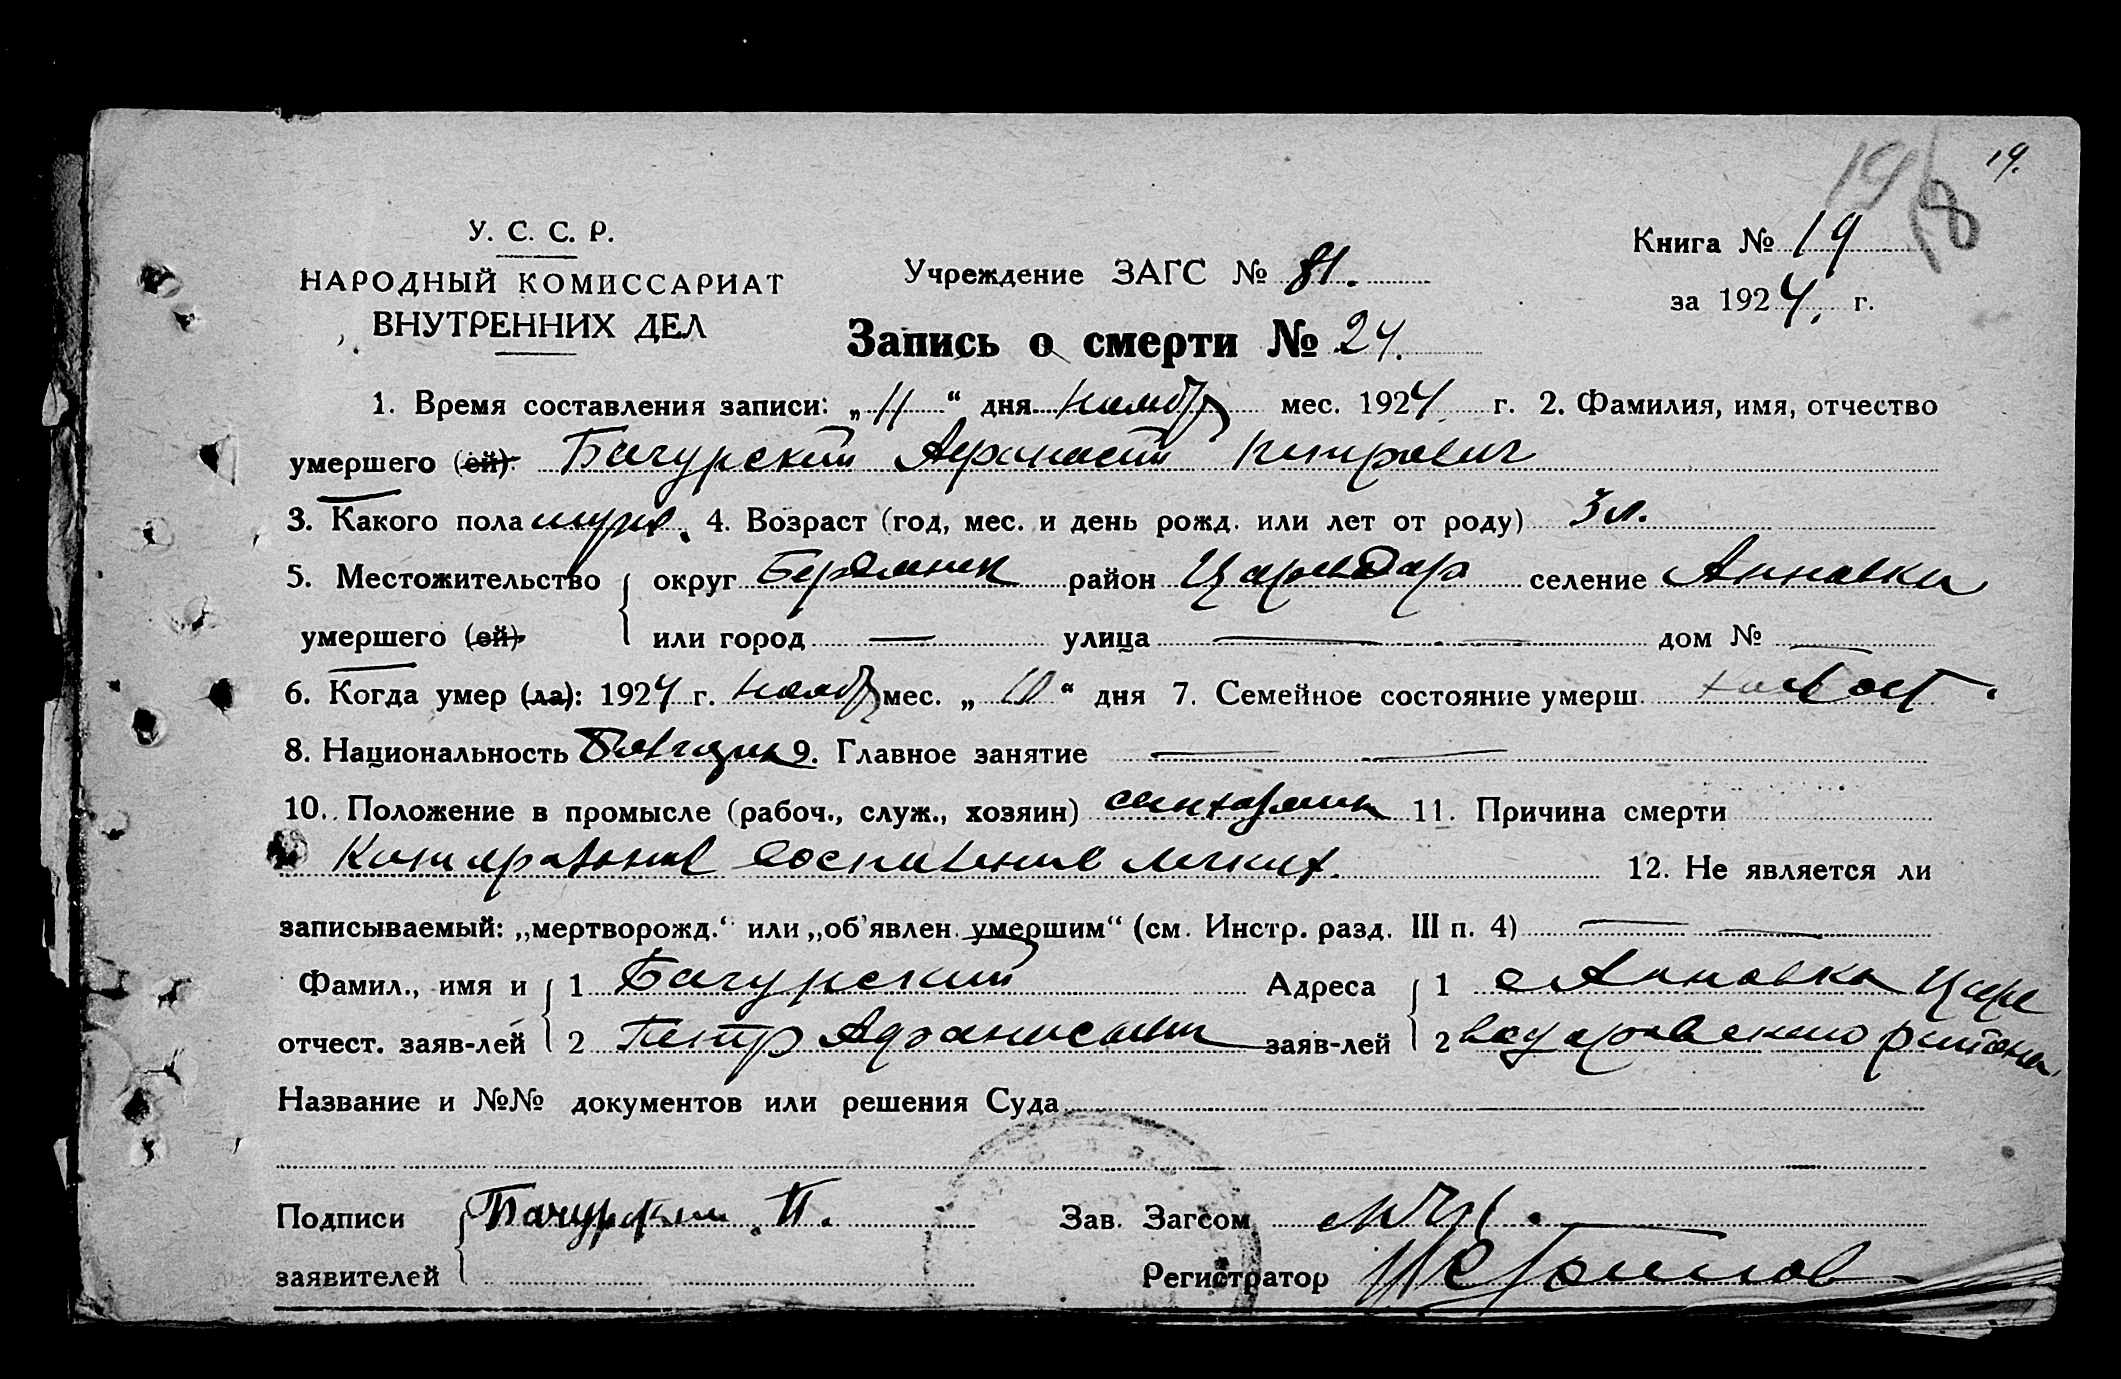 19 18 19.
У. С. С. Р.
НАРОДНЫЙ КОМИССАРИАТ
ВНУТРЕННИХ ДЕЛ
Учреждение ЗАГС № 81.
Книга № 19
за 1924 г.
Запись о смерти № 24.
1. Время составления записи: „11“ дня ноябр мес. 1924 г. 2. Фамилия, имя, отчество
умершего (ой). Бачурский Афанасий Петрович
3. Какого пола муж. 4. Возраст (год, мес. и день рожд. или лет от роду) 3 л.
5. Местожительство округ район Цареводар селение Анновка
умершего (ой) или город — улица — дом № —
6. Когда умер (ла): 1924 г. ноябр мес. „10“ дня 7. Семейное состояние умерш. холост.
8. Национальность 9. Главное занятие —
10. Положение в промысле (рабоч., служ., хозяин) 11. Причина смерти
Катаральное воспаление легких.
12. Не является ли
записываемый: „мертворожд.“ или „об'явлен. умершим“ (см. Инстр. разд. III п. 4) —
Фамил., имя и 1 Бачурский Адреса 1 с Анновка Царе
отчест. заяв-лей 2 Петр Афанасьевич заяв-лей 2 района
Название и №№ документов или решения Суда
Подписи Бачурский П. Зав. Загсом
заявителей Регистратор